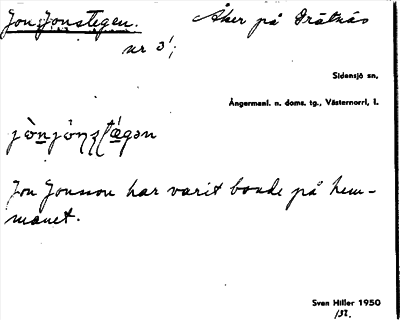 Jon Jonstegen. Åker på Drätnäs
nr 3¹;
Sidensjö sn,
Ångermanl. n. doms. tg., Västernorrl, l.
Jon Jonsson har varit bonde på hem-
manet.
Sven Hiller 1950